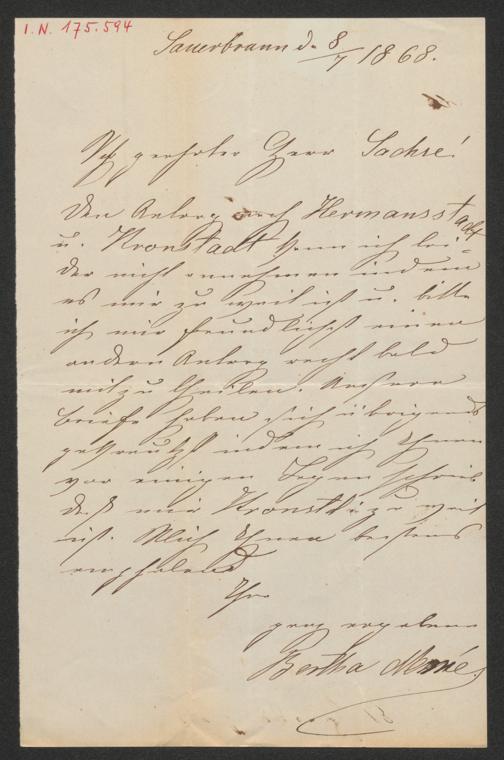 I. N. 175.594
Sauerbrunn d. 8/7 1868.
geehrter Herr Sachse!
Den Antrag nach Hermannsstadt
u. Kronstadt kann ich lei-
der nicht annehmen indem
es mir zu weit ist u. bitte
ich mir freundlichst einen
andern Antrag recht bald
mitzu theilen. Unsere
Briefe haben sich übrigens
gekreutzt indem ich Ihnen
vor einigen Tagen schrieb
daß mir Kronstdt zu weit
ist. Mich Ihnen bestens
empfelend
Ihre
ganz ergebene
Bertha